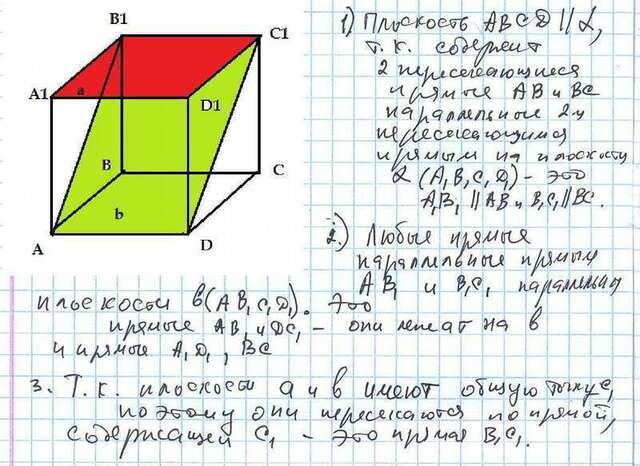 B1
C1
A1
a
D1
B
C
b
A
D
1) Плоскость ABCD || α,
т.к. содержит
2 пересекающиеся
прямые AB и BC
параллельные 2м
пересекающимся
прямым на плоскости
α (A₁B₁C₁D₁) - это
A₁B₁ || AB и B₁C₁ || BC.
2.) Любые прямые
параллельные прямым
AB₁ и B₁C₁ параллельны
плоскости в(AB₁C₁D₁). Это
прямые AB₁ и DC₁ - они лежат на в
и прямые A₁D₁, BC
3. Т.к. плоскости a и в имеют общую точку C₁
поэтому они пересекаются по прямой,
содержащей C₁ - это прямая B₁C₁.